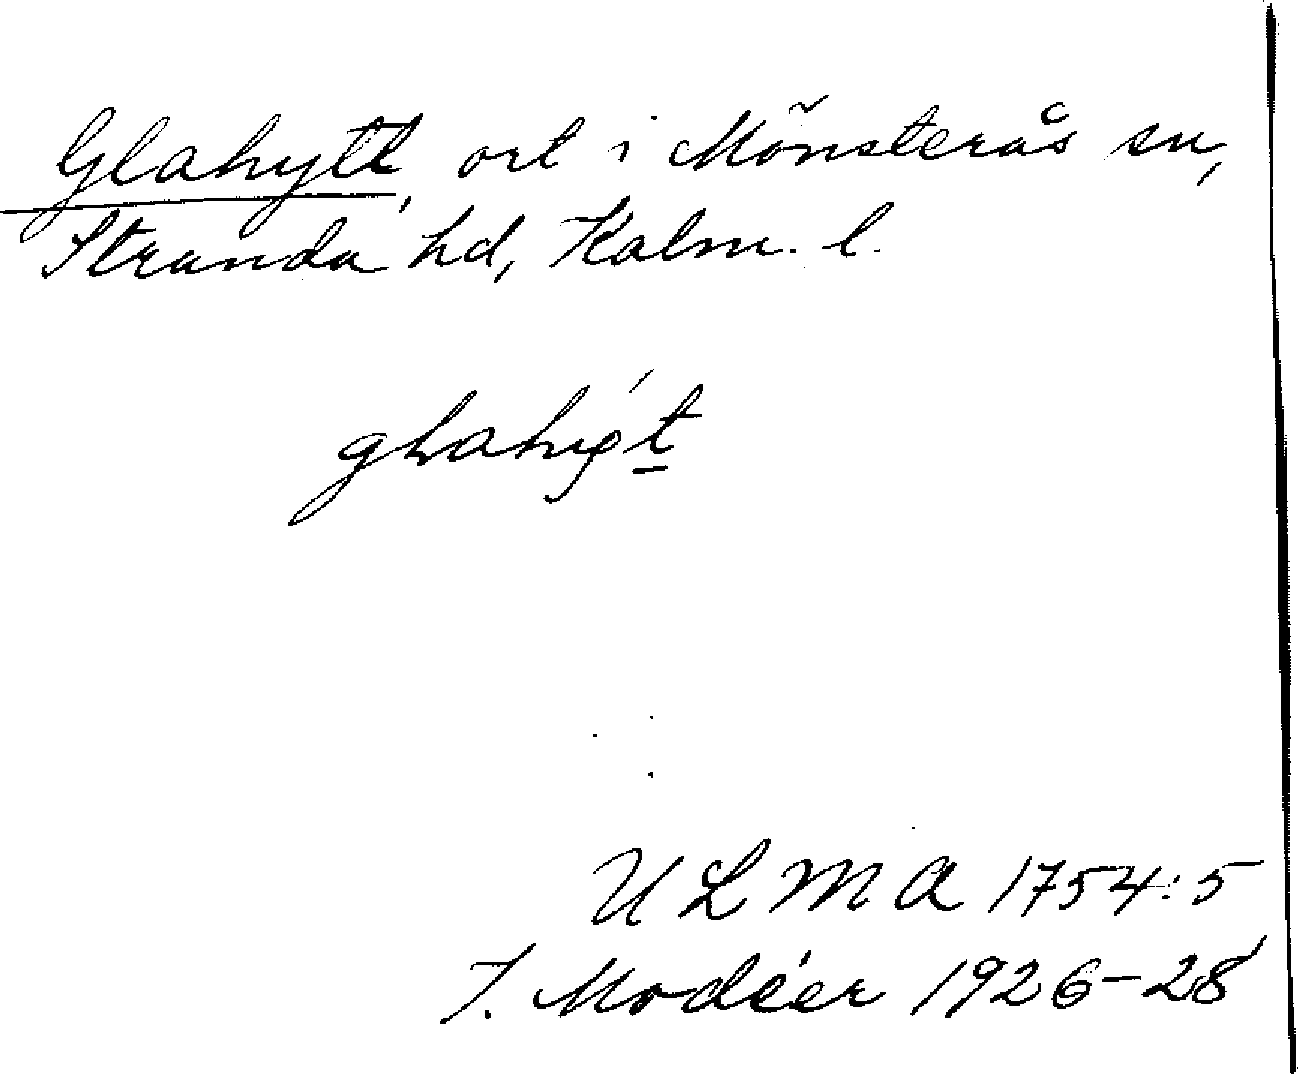 Glahytt, ort i Mönsterås sn,
Stranda hd, Kalm. l.
ULMA 1754:5
I. Modéer 1926-28